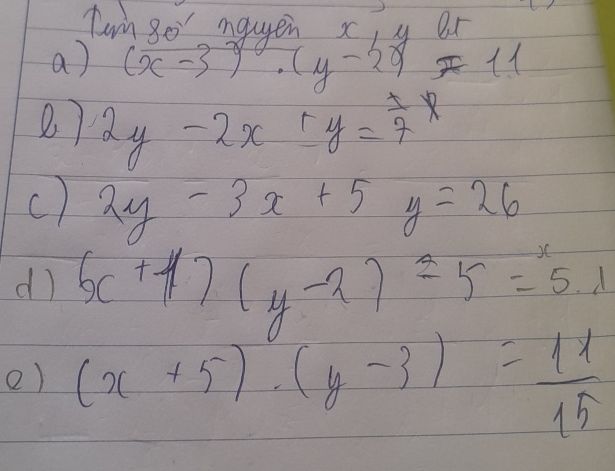 Tìm số nguyên x, y bt
a) (x - 3) . (y - 2) = 11
b) 2y - 2x + y = 7
c) 2y - 3x + 5 y = 26
d) (x + 1) (y - 2) = 5 = 5.1
e) (x + 5) . (y - 3) = 11/15